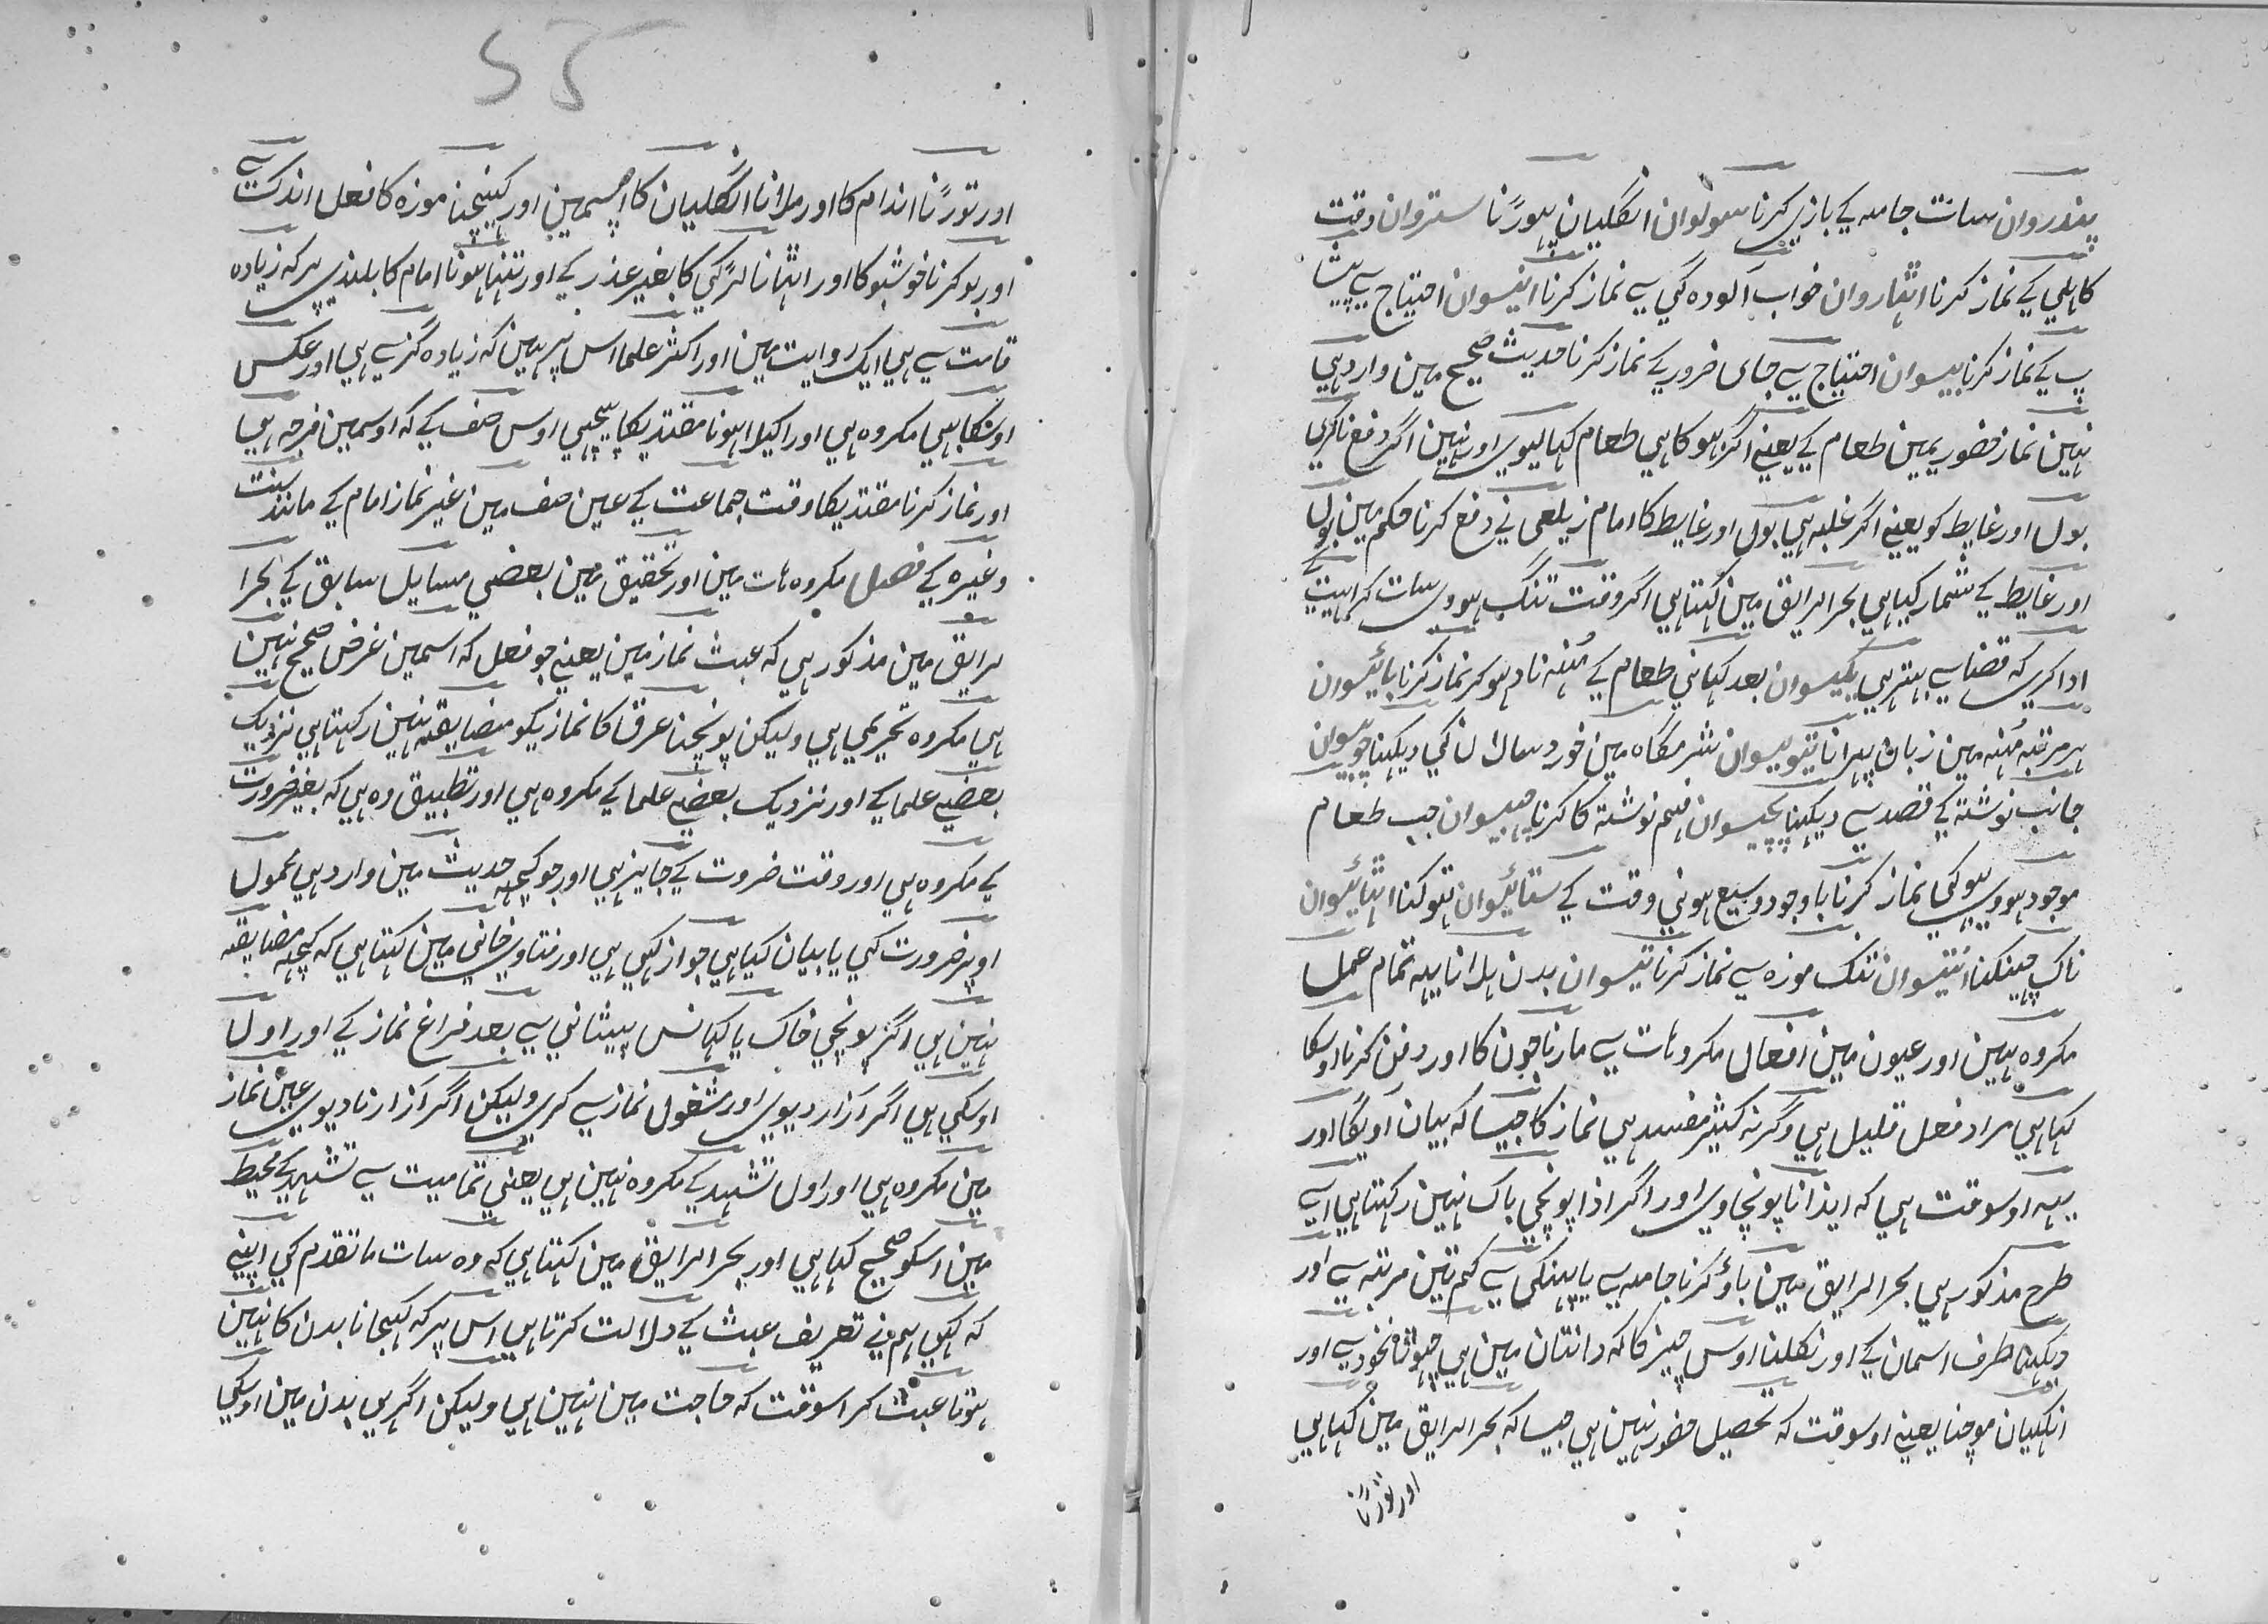 پندروان سات جامہ کے بازی کرنا سولوان انگلیان پہوڑنا ستروان وقت
کاہلی کے نماز کرنا اٹھاروان خواب آلودہ گی سے نماز کرنا انیسوان احتیاج سے پیشا
ب کے نماز کرنا بیسوان احتیاج سے جای ضرور کے نماز کرنا حدیث صحیح مین وارد ہی
نہین نماز حضوریمین طعام کے یعنے اگر بہوکا ہی طعام کہا لیوی اور نہین اگر دفع ناکری
بول اور غایط کو یعنے اگر غلبہ ہی بول اور غایط کا امام زیلعی نے دفع کرنا حکم مین بول
اور غایط کے شمار کیا ہی بحر الرایق مین کہتا ہی اگر وقت تنگ ہووی سات کراہیت کے
ادا کری کہ قضا سے بہتر ہی یکیسوان بعد کہانی طعام کے مُنہ نا دہو کر نماز کرنا بائیسوان
ہر مرتبہ مُنہ مین زبان پہرانا تیویسوان شرمگاہ مین خورد سالان کی دیکہنا چوبیسوان
جانب نوشتہ کے قصد سے دیکہنا پچیسوان فہم نوشتہ کا کرنا چہبیسوان جب طعام
موجود ہووی بہوکی نماز کرنا باوجود وسیع ہونی وقت کے ستائیسوان تہوکنا اٹہائیسوان
ناک چہینکنا انتیسوان تنگ موزہ سے نماز کرنا تیسوان بدن ہلانا یہہ تمام عمل
مکروہ ہین اور عیون مین افعال مکروہات سے مارنا جون کا اور دفن کرنا اوسکا
کہا ہی مراد فعل قلیل ہی وگرنہ کثیر مفسد ہی نماز کا جیسا کہ بیان آویگا اور
یہہ اوسوقت ہی کہ ایذا نا پونچاوی اور اگر اذا پونچی باک نہین رکہتا ہی اسے
طرح مذکور ہی بحر الرایق مین باؤ کرنا جامہ سے یا پہنکی سے کم تین مرتبہ سے اور
دیکہنا طرف اسمان کے اور نکلنا اوس چیز کا کہ دانتان مین ہی چہوٹا نخود سے اور
انگلیان موچنا یعنے اوسوقت کہ تحصیل حضور نہین ہی جیسا کہ بحر الرایق مین کہا ہی
اور توڑنا
اور توڑنا اندام کا اور ملانا انگلیان کا اپسمین اور کہینچنا موزہ کا فعل اندک سے
اور بو کرنا خوشبو کا اور اٹہانا لڑکی کا بغیر عذر کے اور تنہا ہونا امام کا بلندی پر کہ زیادہ
قامت سے ہی ایک روایت مین اور اکثر علما اس پر ہین کہ زیادہ گز سے ہی اور عکس
اوسکا بہی مکروہ ہی اور اکیلا ہونا مقتدیکا پیچہی اوس صف کے کہ اوسمین فرجہ ہی
اور نماز کرنا مقتدیکا وقت جماعت کے عین صف مین غیر نماز امام کے مانند سنت
وغیرہ کے فصل مکروہات مین اور تحقیق مین بعضی مسایل سابق کے بحرا
لرایق مین مذکور ہی کہ عبث نماز مین یعنے جو فعل کہ اسمین غرض صحیح نہین
ہی مکروہ تحریمی ہی ولیکن پونچہنا عرق کا نماز یکو مضایقہ نہین رکہتا ہی نزدیک
بعضے علما کے اور نزدیک بعضے علما کے مکروہ ہی اور تطبیق وہ ہی کہ بغیر ضرورت
کے مکروہ ہی اور وقت ضروت کے جایز ہی اور جو کچہہ حدیث مین وارد ہی محمول
اوپر ضرورت کی یا بیان کیا ہی جواز کی ہی اور فتاوی خانی مین کہتا ہی کہ کچہہ مضایقہ
نہین ہی اگر پونچی خاک یا کہانس پیشانی سے بعد فراغ نماز کے اور اول
اوسکی ہی اگر آزار دیوی اور مشغول نماز سے کری ولیکن اگر آزار نا دیوی عین نماز
مین مکروہ ہی اور اول تشہد کے مکروہ نہین ہی یعنی تمامیت سے تشہد کے محیط
مین اسکو صحیح کہا ہی اور بحر الرایق مین کہتا ہی کہ وہ سات ما تقدم کی اپنے
کہ کہی ہم نے تعریف عبث کے دلالت کرتا ہی اس پر کہ کہجانا بدن کا نہین
ہوتا عبث کر اسوقت کہ حاجت مین نہین ہی ولیکن اگر ہی بدن مین اوسکی